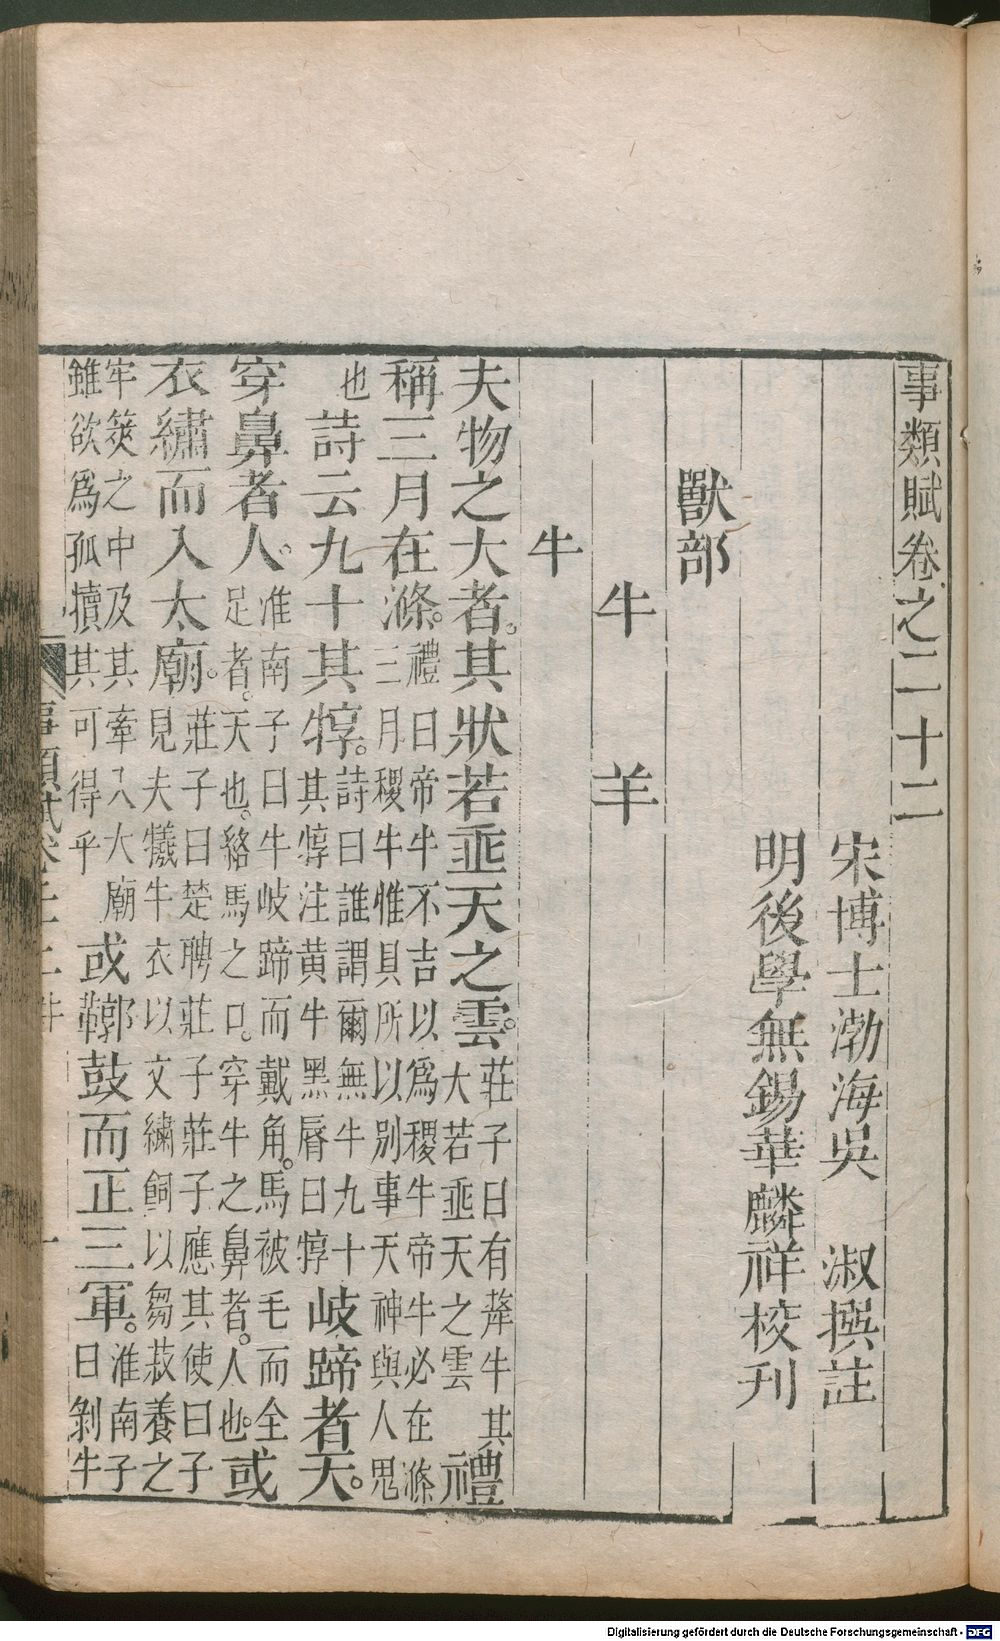 事類賦卷之二十二
宋博士渤海吳 淑撰註
明後學無錫華麟祥校刊
獸部
牛 羊
牛
夫物之大者。其狀若垂天之雲。莊子曰有犛牛其大若垂天之雲禮
稱三月在滌。禮曰帝牛不吉以爲稷牛帝牛必在滌三月稷牛惟具所以別事天神與人鬼
也詩云九十其犉。詩曰誰謂爾無牛九十其犉注黄牛黑脣曰犉岐蹄者天。
穿鼻者人。淮南子曰牛岐蹄而戴角。馬被毛而全足者。天也。絡馬之口。穿牛之鼻者。人也。或
衣繡而入太廟。莊子曰楚聘莊子莊子應其使曰子見夫犧牛衣以文繡飼以芻菽養之
牢筴之中及其牽入大廟雖欲爲孤犢其可得乎或鞹鼓而正三軍。淮南子曰剝牛
事類賦卷二十二 一
Digitalisierung gefördert durch die Deutsche Forschungsgemeinschaft - DFG